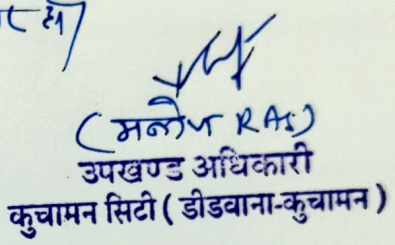 (मनोज RAS)
उपखण्ड अधिकारी
कुचामन सिटी ( डीडवाना-कुचामन )